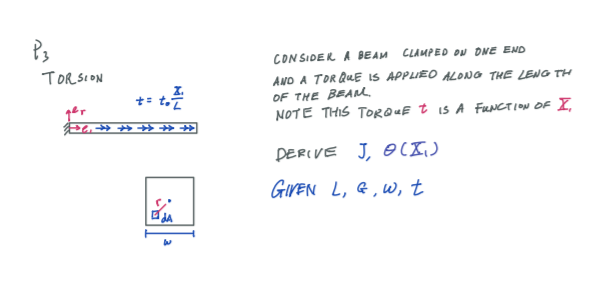 P3
TORSION
t = t₀ X₁/L
er
e₁
r
dA
w
CONSIDER A BEAM CLAMPED ON ONE END
AND A TORQUE IS APPLIED ALONG THE LENGTH
OF THE BEAM.
NOTE THIS TORQUE t IS A FUNCTION OF X₁
DERIVE J, θ(X₁)
GIVEN L, G, w, t